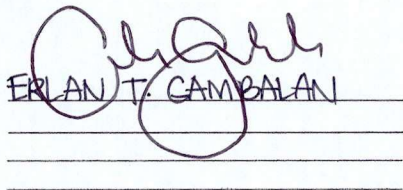 ERLAN T. GAMBALAN